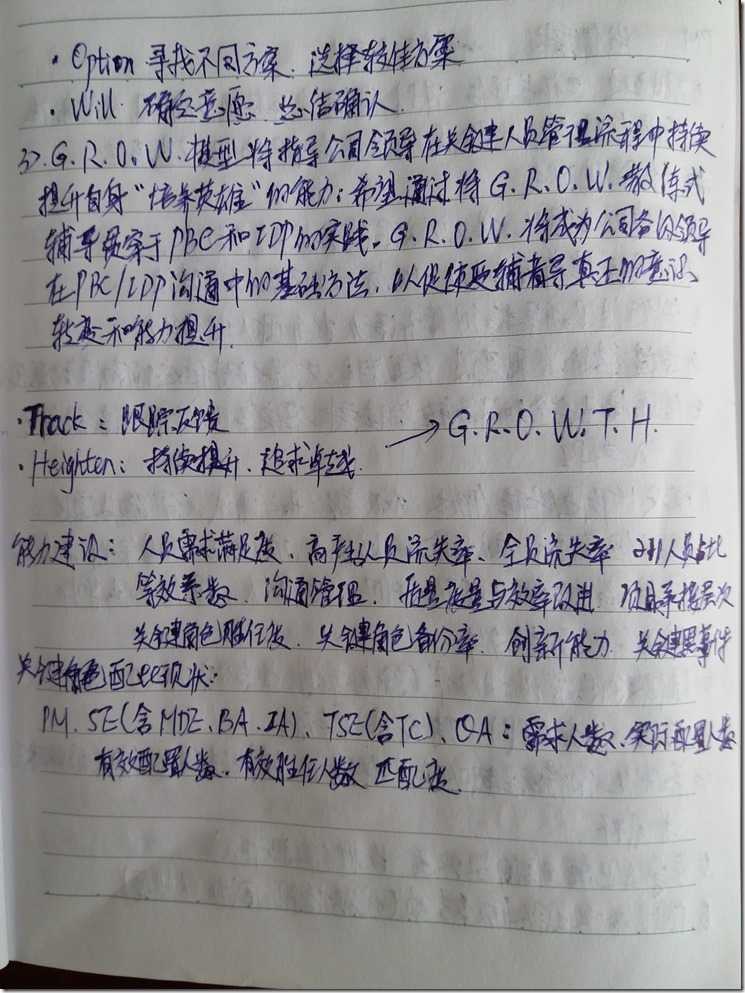 · Option 寻找不同方案、选择较佳方案
· Will 确定意愿、总结确认
3>. G. R. O. W. 模型将指导公司领导在关键人员管理流程中持续
提升自身“培养英雄”的能力；希望通过将 G. R. O. W. 教练式
辅导贯穿于 PBC 和 IDP 的实践。G. R. O. W. 将成为公司各级领导
在 PBC/IDP 沟通中的基础方法，以促使被辅导者真正的意识
转变和能力提升.
· Track：跟踪反馈
→ G. R. O. W. T. H.
· Heighten：持续提升、追求卓越.
能力建设： 人员需求满足度、高产出人员流失率、全员流失率 人员占比
等效系数、沟通管理、质量度量与效率改进 项目承接层次
关键角色胜任度、关键角色备份率、创新能力、关键黑事件
关键角色配比现状：
PM、SE(含 MDE、BA、IA)、TSE(含TC)、QA：需求人数、实际配置人数
有效配置人数、有效胜任人数 匹配度.